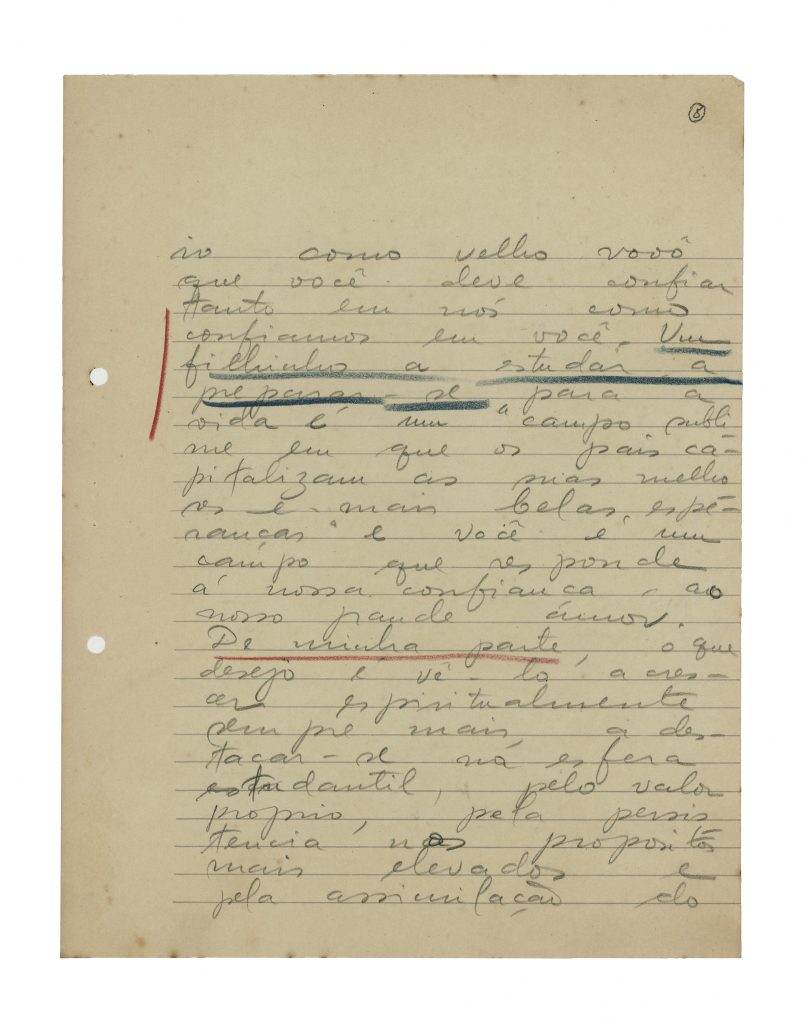 6
io como velho vovô
que você deve confiar
tanto em nós como
confiamos em você. Um
filhinho a estudar, a
preparar-se para a
vida é um "campo subli
me em que os pais ca-
pitalizam as suas melho
res e mais belas espe-
ranças" e você é um
campo que responde
á nossa confiança, ao
nosso grande amor.
De minha parte, o que
desejo é vê-lo a cres-
cer espiritualmente
sempre mais, a des-
tacar-se na esfera
estudantil, pelo valor
proprio, pela persis
tencia nos propositos
mais elevados e
pela assimilação do